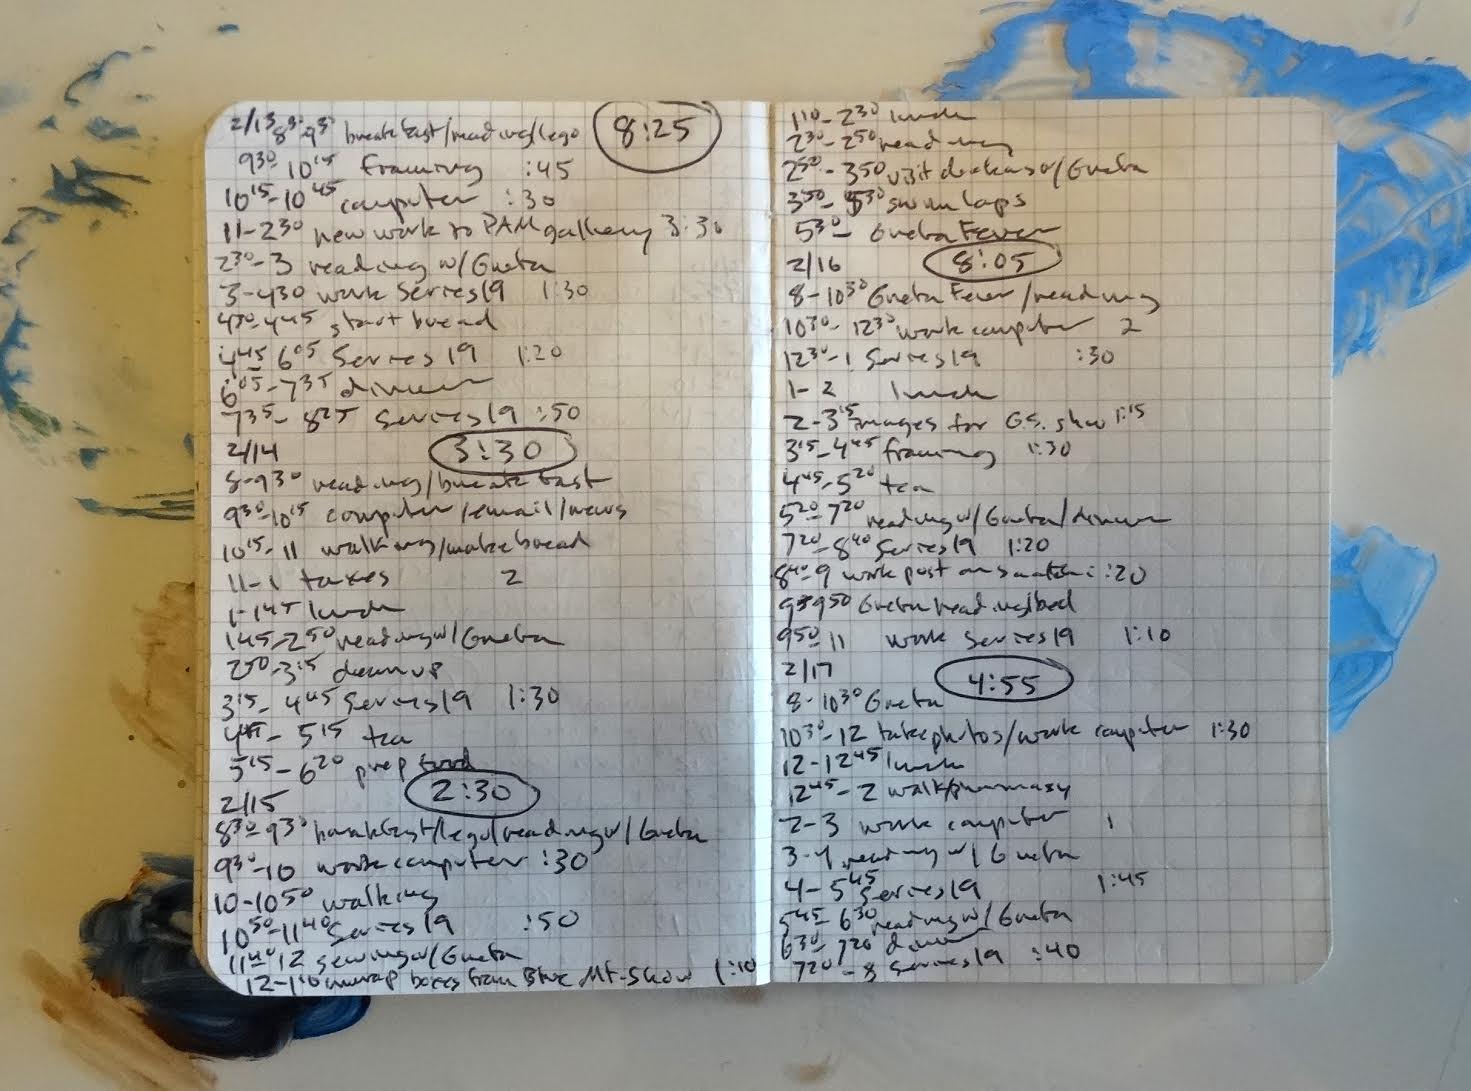 2/13 8³⁰-9³⁰ breakfast/reading/lego 8:25
9³⁰-10¹⁵ framing :45
10¹⁵-10⁴⁵ computer :30
11-2³⁰ new work to PAM gallery 3:30
2³⁰-3 reading w/Greta
3-4³⁰ work Series 19 1:30
4³⁰-4⁴⁵ start bread
4⁴⁵-6⁰⁵ Series 19 1:20
6⁰⁵-7³⁵ dinner
7³⁵-8²⁵ Series 19 :50
2/14 3:30
8-9³⁰ reading/breakfast
9³⁰-10¹⁵ computer/email/news
10¹⁵-11 walking/make bread
11-1 taxes 2
1-1⁴⁵ lunch
1⁴⁵-2⁵⁰ reading w/Greta
2⁵⁰-3¹⁵ clean up
3¹⁵-4⁴⁵ Series 19 1:30
4⁴⁵-5¹⁵ tea
5¹⁵-6²⁰ prep food
2/15 2:30
8³⁰-9³⁰ breakfast/lego/reading w/Greta
9³⁰-10 work computer :30
10-10⁵⁰ walking
10⁵⁰-11⁴⁰ Series 19 :50
11⁴⁰-12 sewing w/Greta
12-1¹⁰ unwrap boxes from Blue Mt. Show 1:10
1¹⁰-2³⁰ lunch
2³⁰-2⁵⁰ reading
2⁵⁰-3⁵⁰ visit w/Greta
3⁵⁰-5³⁰ swim laps
5³⁰- Greta Fever
2/16 8:05
8-10³⁰ Greta Fever/reading
10³⁰-12³⁰ work computer 2
12³⁰-1 Series 19 :30
1-2 lunch
2-3¹⁵ images for G.S. show 1:15
3¹⁵-4⁴⁵ framing 1:30
4⁴⁵-5²⁰ tea
5²⁰-7²⁰ reading w/Greta/dinner
7²⁰-8⁴⁰ Series 19 1:20
8⁴⁰-9 work post on :20
9-9⁵⁰ Greta reading/bed
9⁵⁰-11 work Series 19 1:10
2/17 4:55
8-10³⁰ Greta
10³⁰-12 take photos/work computer 1:30
12-12⁴⁵ lunch
12⁴⁵-2 walk/pharmacy
2-3 work computer 1
3-4 reading w/Greta
4-5⁴⁵ Series 19 1:45
5⁴⁵-6³⁰ reading w/Greta
6³⁰-7²⁰ dinner
7²⁰-8 Series 19 :40